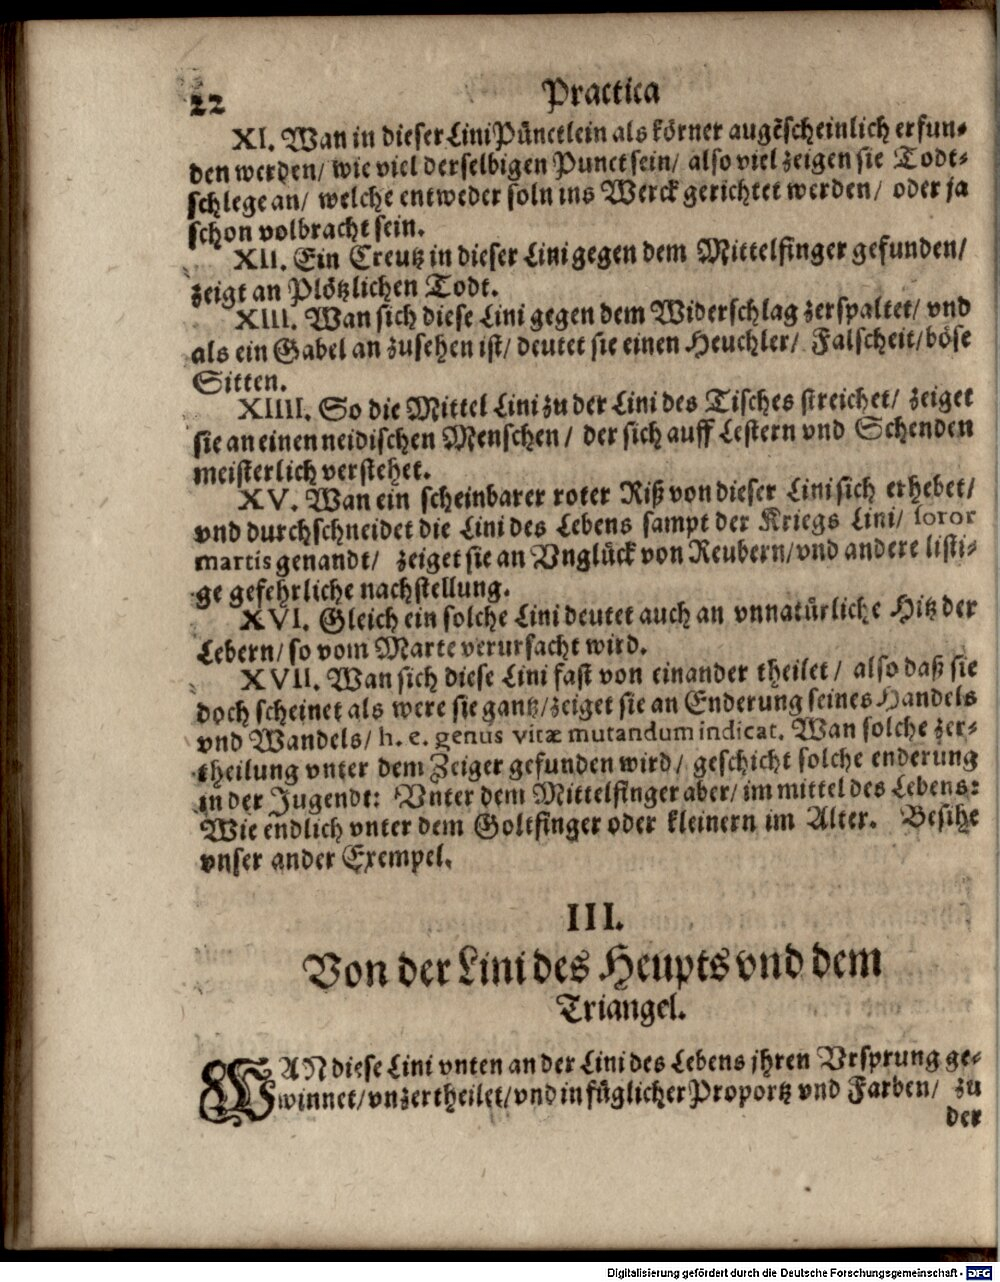 22 Practica
XI. Wan in dieser Lini Pünctlein als körner augēscheinlich erfun-
den werden/ wie viel derselbigen Punct sein/ also viel zeigen sie Todt-
schlege an/ welche entweder soln ins Werck gerichtet werden/ oder ja
schon volbracht sein.
XII. Ein Creutz in dieser Lini gegen dem Mittelfinger gefunden/
zeigt an Plötzlichen Todt.
XIII. Wan sich diese Lini gegen dem Widerschlag zerspaltet/ vnd
als ein Gabel an zusehen ist/ deutet sie einen Heuchler/ Falscheit/ böse
Sitten.
XIIII. So die Mittel Lini zu der Lini des Tisches streichet/ zeiget
sie an einen neidischen Menschen/ der sich auff Lestern vnd Schenden
meisterlich verstehet.
XV. Wan ein scheinbarer roter Riß von dieser Lini sich erhebet/
vnd durchschneidet die Lini des Lebens sampt der Kriegs Lini/ soror
martis genandt/ zeiget sie an Vnglück von Reubern/ vnd andere listi-
ge gefehrliche nachstellung.
XVI. Gleich ein solche Lini deutet auch an vnnatürliche Hitz der
Lebern/ so vom Marte verursacht wird.
XVII. Wan sich diese Lini fast von einander theilet/ also daß sie
doch scheinet als were sie gantz/ zeiget sie an Enderung seines Handels
vnd Wandels/ h. e. genus vitæ mutandum indicat. Wan solche zer-
theilung vnter dem Zeiger gefunden wird/ geschicht solche enderung
in der Jugendt: Vnter dem Mittelfinger aber/ im mittel des Lebens:
Wie endlich vnter dem Goltfinger oder kleinern im Alter. Besihe
vnser ander Exempel.
III.
Von der Lini des Heupts vnd dem
Triangel.
WAN diese Lini vnten an der Lini des Lebens jhren Vrsprung ge-
winnet/ vnzertheilet/ vnd in füglicher Proportz vnd Farben/ zu
der
Digitalisierung gefördert durch die Deutsche Forschungsgemeinschaft - DFG